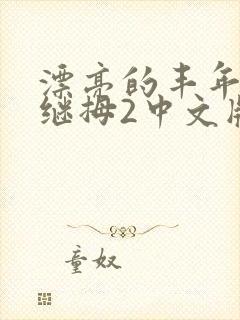 漂亮的丰年
继拇2中文版
童奴